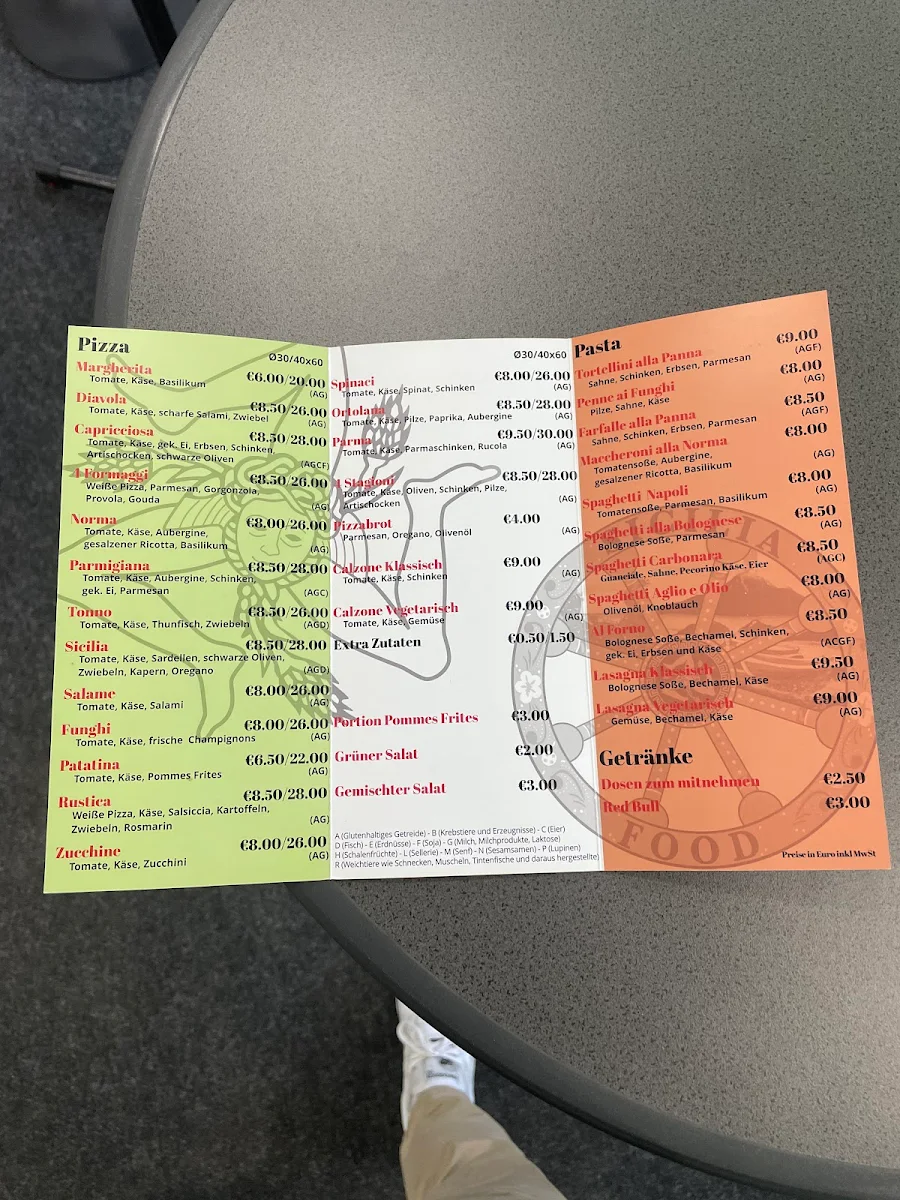 Pizza
Ø30/40x60
Margherita €6.00/20.00
Tomate, Käse, Basilikum (AG)
Diavola €8.50/26.00
Tomate, Käse, scharfe Salami, Zwiebel (AG)
Capricciosa €8.50/28.00
Tomate, Käse, gek. Ei, Erbsen, Schinken,
Artischocken, schwarze Oliven (AGCF)
4 Formaggi €8.50/26.00
Weiße Pizza, Parmesan, Gorgonzola,
Provola, Gouda (AG)
Norma €8.00/26.00
Tomate, Käse, Aubergine,
gesalzener Ricotta, Basilikum (AG)
Parmigiana €8.50/28.00
Tomate, Käse, Aubergine, Schinken,
gek. Ei, Parmesan (AGC)
Tonno €8.50/26.00
Tomate, Käse, Thunfisch, Zwiebeln (AGD)
Sicilia €8.50/28.00
Tomate, Käse, Sardellen, schwarze Oliven,
Zwiebeln, Kapern, Oregano (AGD)
Salame €8.00/26.00
Tomate, Käse, Salami (AG)
Funghi €8.00/26.00
Tomate, Käse, frische Champignons (AG)
Patatina €6.50/22.00
Tomate, Käse, Pommes Frites (AG)
Rustica €8.50/28.00
Weiße Pizza, Käse, Salsiccia, Kartoffeln,
Zwiebeln, Rosmarin (AG)
Zucchine €8.00/26.00
Tomate, Käse, Zucchini (AG)
Ø30/40x60
Spinaci €8.00/26.00
Tomate, Käse, Spinat, Schinken (AG)
Ortolana €8.50/28.00
Tomate, Käse, Pilze, Paprika, Aubergine (AG)
Parma €9.50/30.00
Tomate, Käse, Parmaschinken, Rucola (AG)
4 Stagioni €8.50/28.00
Tomate, Käse, Oliven, Schinken, Pilze,
Artischocken (AG)
Pizzabrot €4.00
Parmesan, Oregano, Olivenöl (AG)
Calzone Klassisch €9.00
Tomate, Käse, Schinken (AG)
Calzone Vegetarisch €9.00
Tomate, Käse, Gemüse (AG)
Extra Zutaten €0.50/1.50
Portion Pommes Frites €3.00
Grüner Salat €2.00
Gemischter Salat €3.00
A (Glutenhaltiges Getreide) - B (Krebstiere und Erzeugnisse) - C (Eier)
D (Fisch) - E (Erdnüsse) - F (Soja) - G (Milch, Milchprodukte, Laktose)
H (Schalenfrüchte) - L (Sellerie) - M (Senf) - N (Sesamsamen) - P (Lupinen)
R (Weichtiere wie Schnecken, Muscheln, Tintenfische und daraus hergestellte)
Pasta
Tortellini alla Panna €9.00
Sahne, Schinken, Erbsen, Parmesan (AGF)
Penne ai Funghi €8.00
Pilze, Sahne, Käse (AG)
Farfalle alla Panna €8.50
Sahne, Schinken, Erbsen, Parmesan (AGF)
Maccheroni alla Norma €8.00
Tomatensoße, Aubergine,
gesalzener Ricotta, Basilikum (AG)
Spaghetti Napoli €8.00
Tomatensoße, Parmesan, Basilikum (AG)
Spaghetti alla Bolognese €8.50
Bolognese Soße, Parmesan (AG)
Spaghetti Carbonara €8.50
Guanciale, Sahne, Pecorino Käse, Eier (AGC)
Spaghetti Aglio e Olio €8.00
Olivenöl, Knoblauch (AG)
Al Forno €8.50
Bolognese Soße, Bechamel, Schinken,
gek. Ei, Erbsen und Käse (ACGF)
Lasagna Klassisch €9.50
Bolognese Soße, Bechamel, Käse (AG)
Lasagna Vegetarisch €9.00
Gemüse, Bechamel, Käse (AG)
Getränke
Dosen zum mitnehmen €2.50
Red Bull €3.00
FOOD
Preise in Euro inkl MwSt